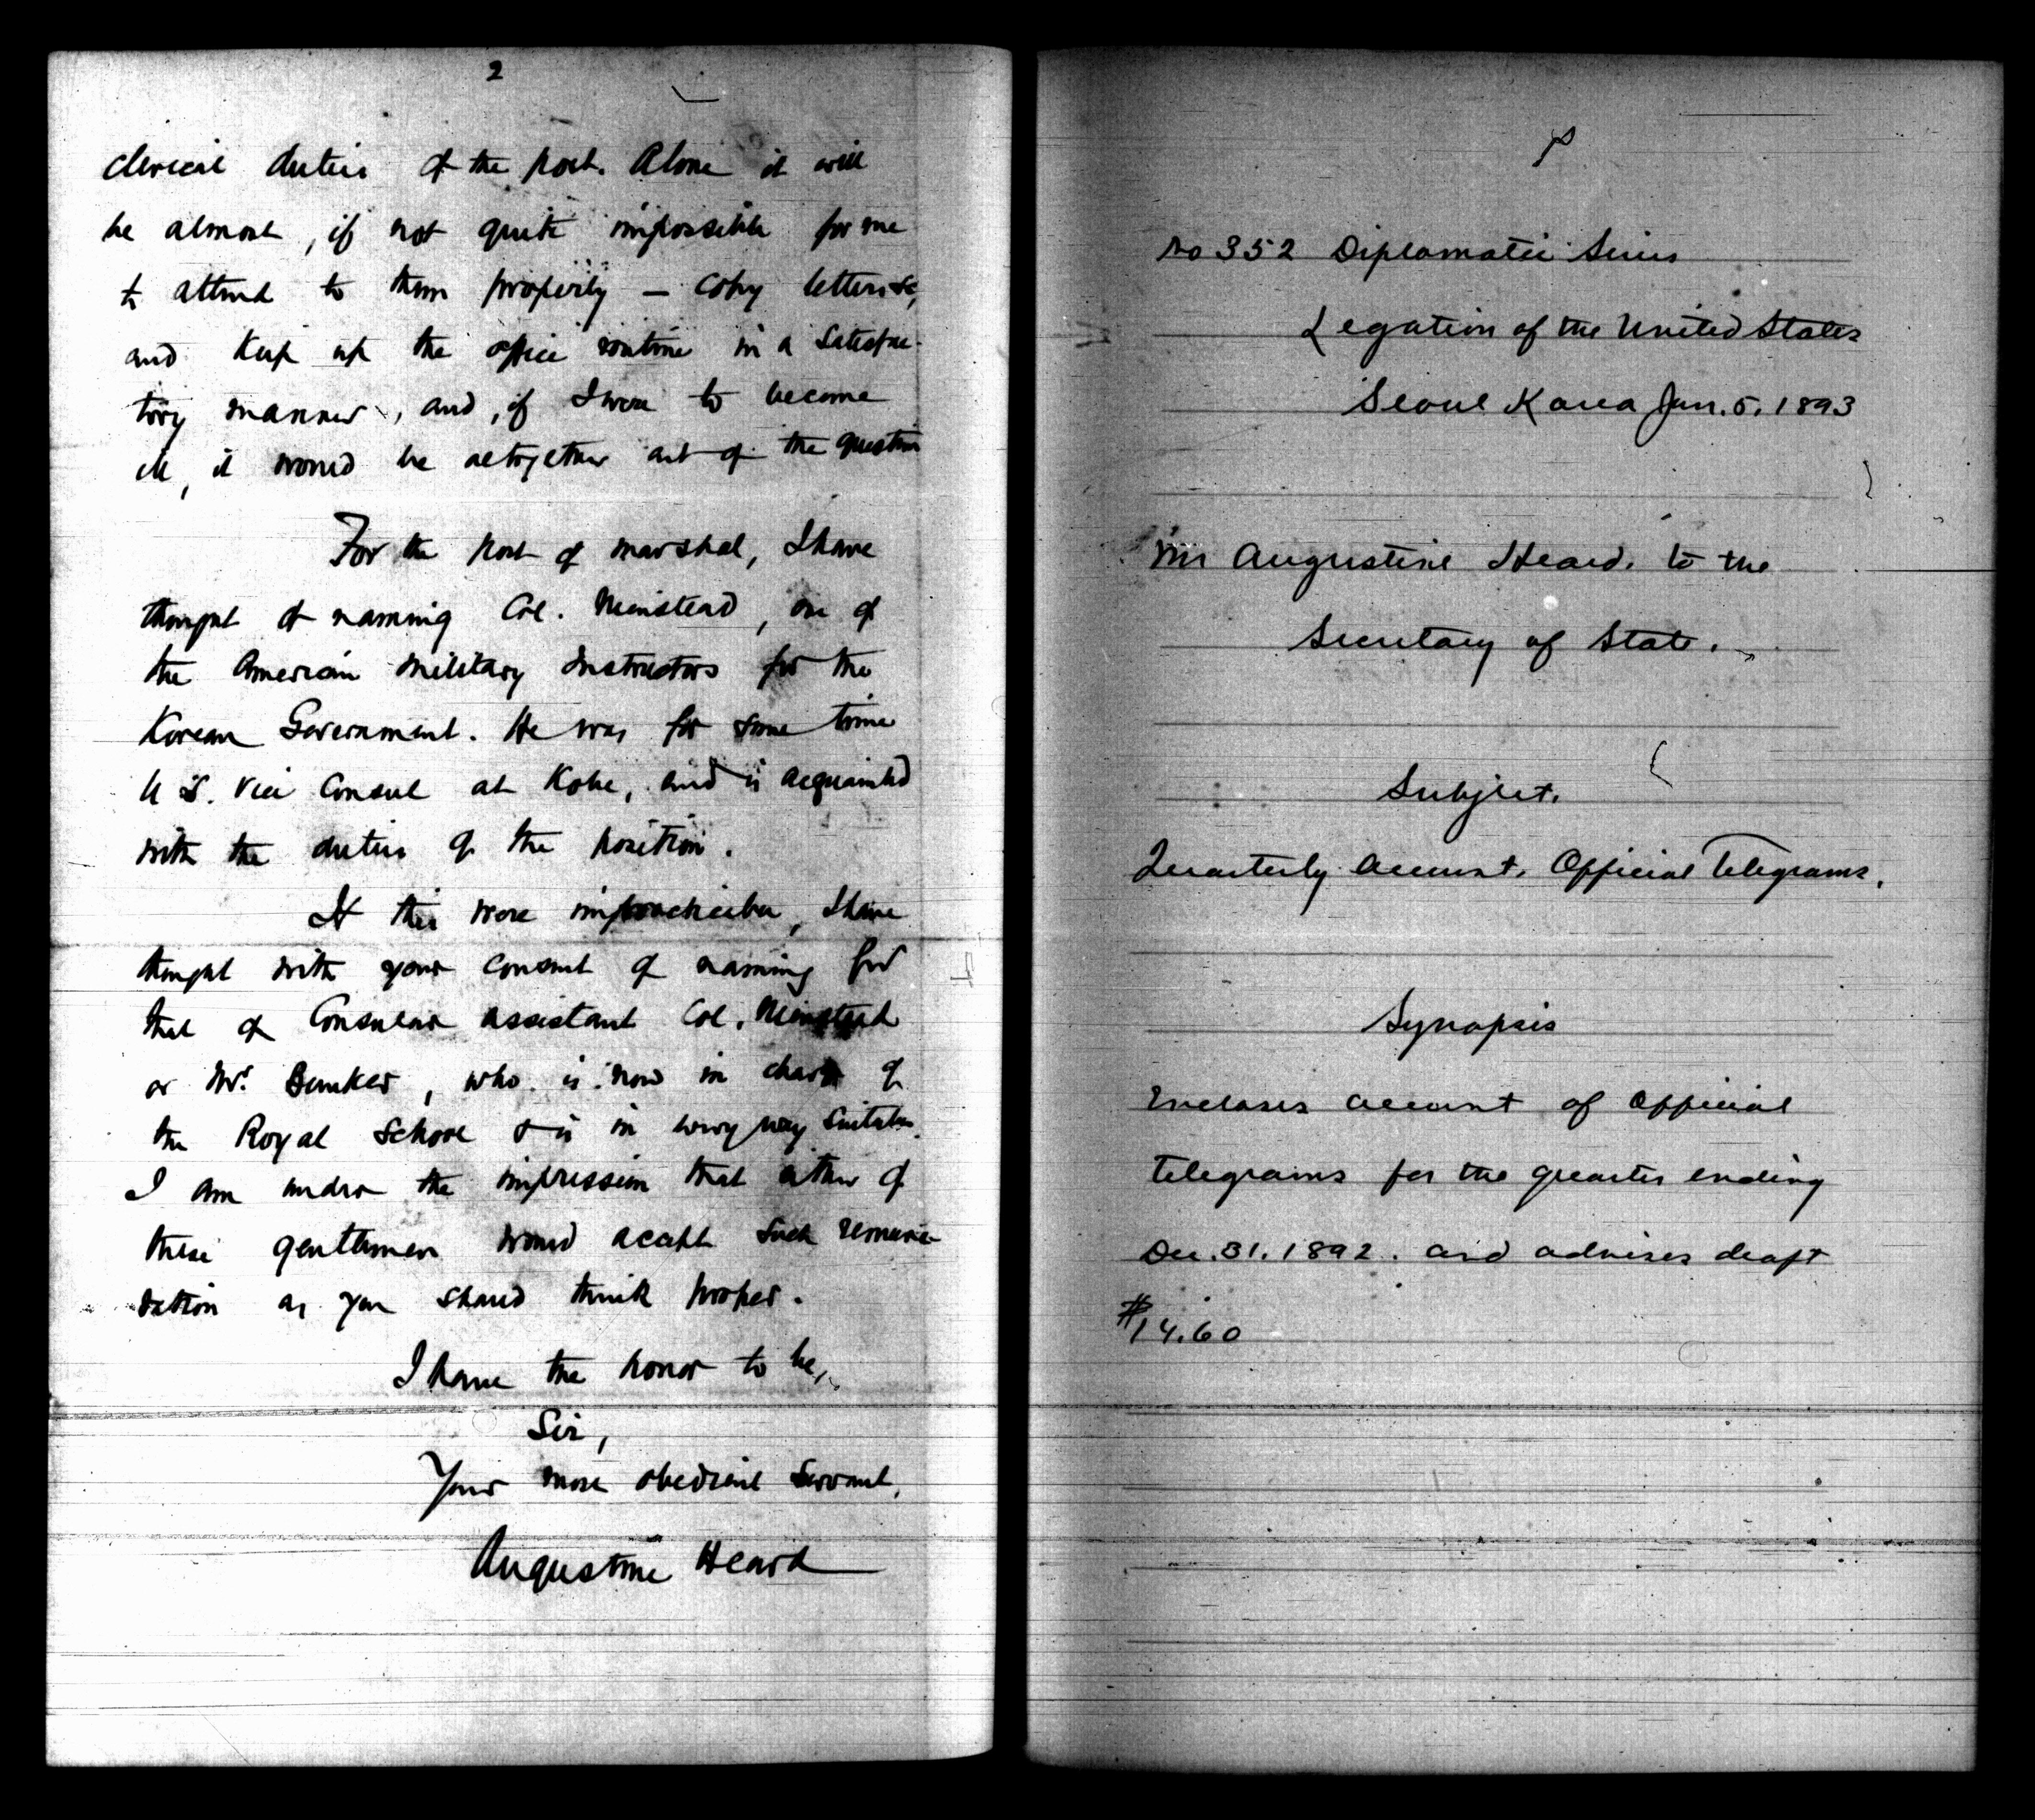 2
clerical duties of the post. Alone it will
be almost, if not quite impossible for me
to attend to them properly — copy letters &c,
and keep up the office routine in a satisfac-
tory manner, and, if I were to become
ill, it would be altogether out of the question
For the post of marshal, I have
thought of naming Col. Nienstead, one of
the American military instructors for the
Korean Government. He was for some time
U.S. Vice Consul at Kobe, and is acquainted
with the duties of the position.
If this were impracticable, I have
thought with your consent of naming for
that of Consular assistant Col. Nienstead
or Mr. Bunker, who is now in charge of
the Royal School & is in every way suitable.
I am under the impression that either of
these gentlemen would accept such remune-
ration as you should think proper.
I have the honor to be,
Sir,
Your most obedient servant,
Augustine Heard
No 352 Diplomatic Series
Legation of the United States
Seoul Korea Jan. 5. 1893
Mr Augustine Heard. to the
Secretary of State.
Subject.
Quarterly Account. Official Telegrams.
Synopsis
Encloses account of Official
telegrams for the quarter ending
Dec. 31. 1892. and advises draft
$14.60